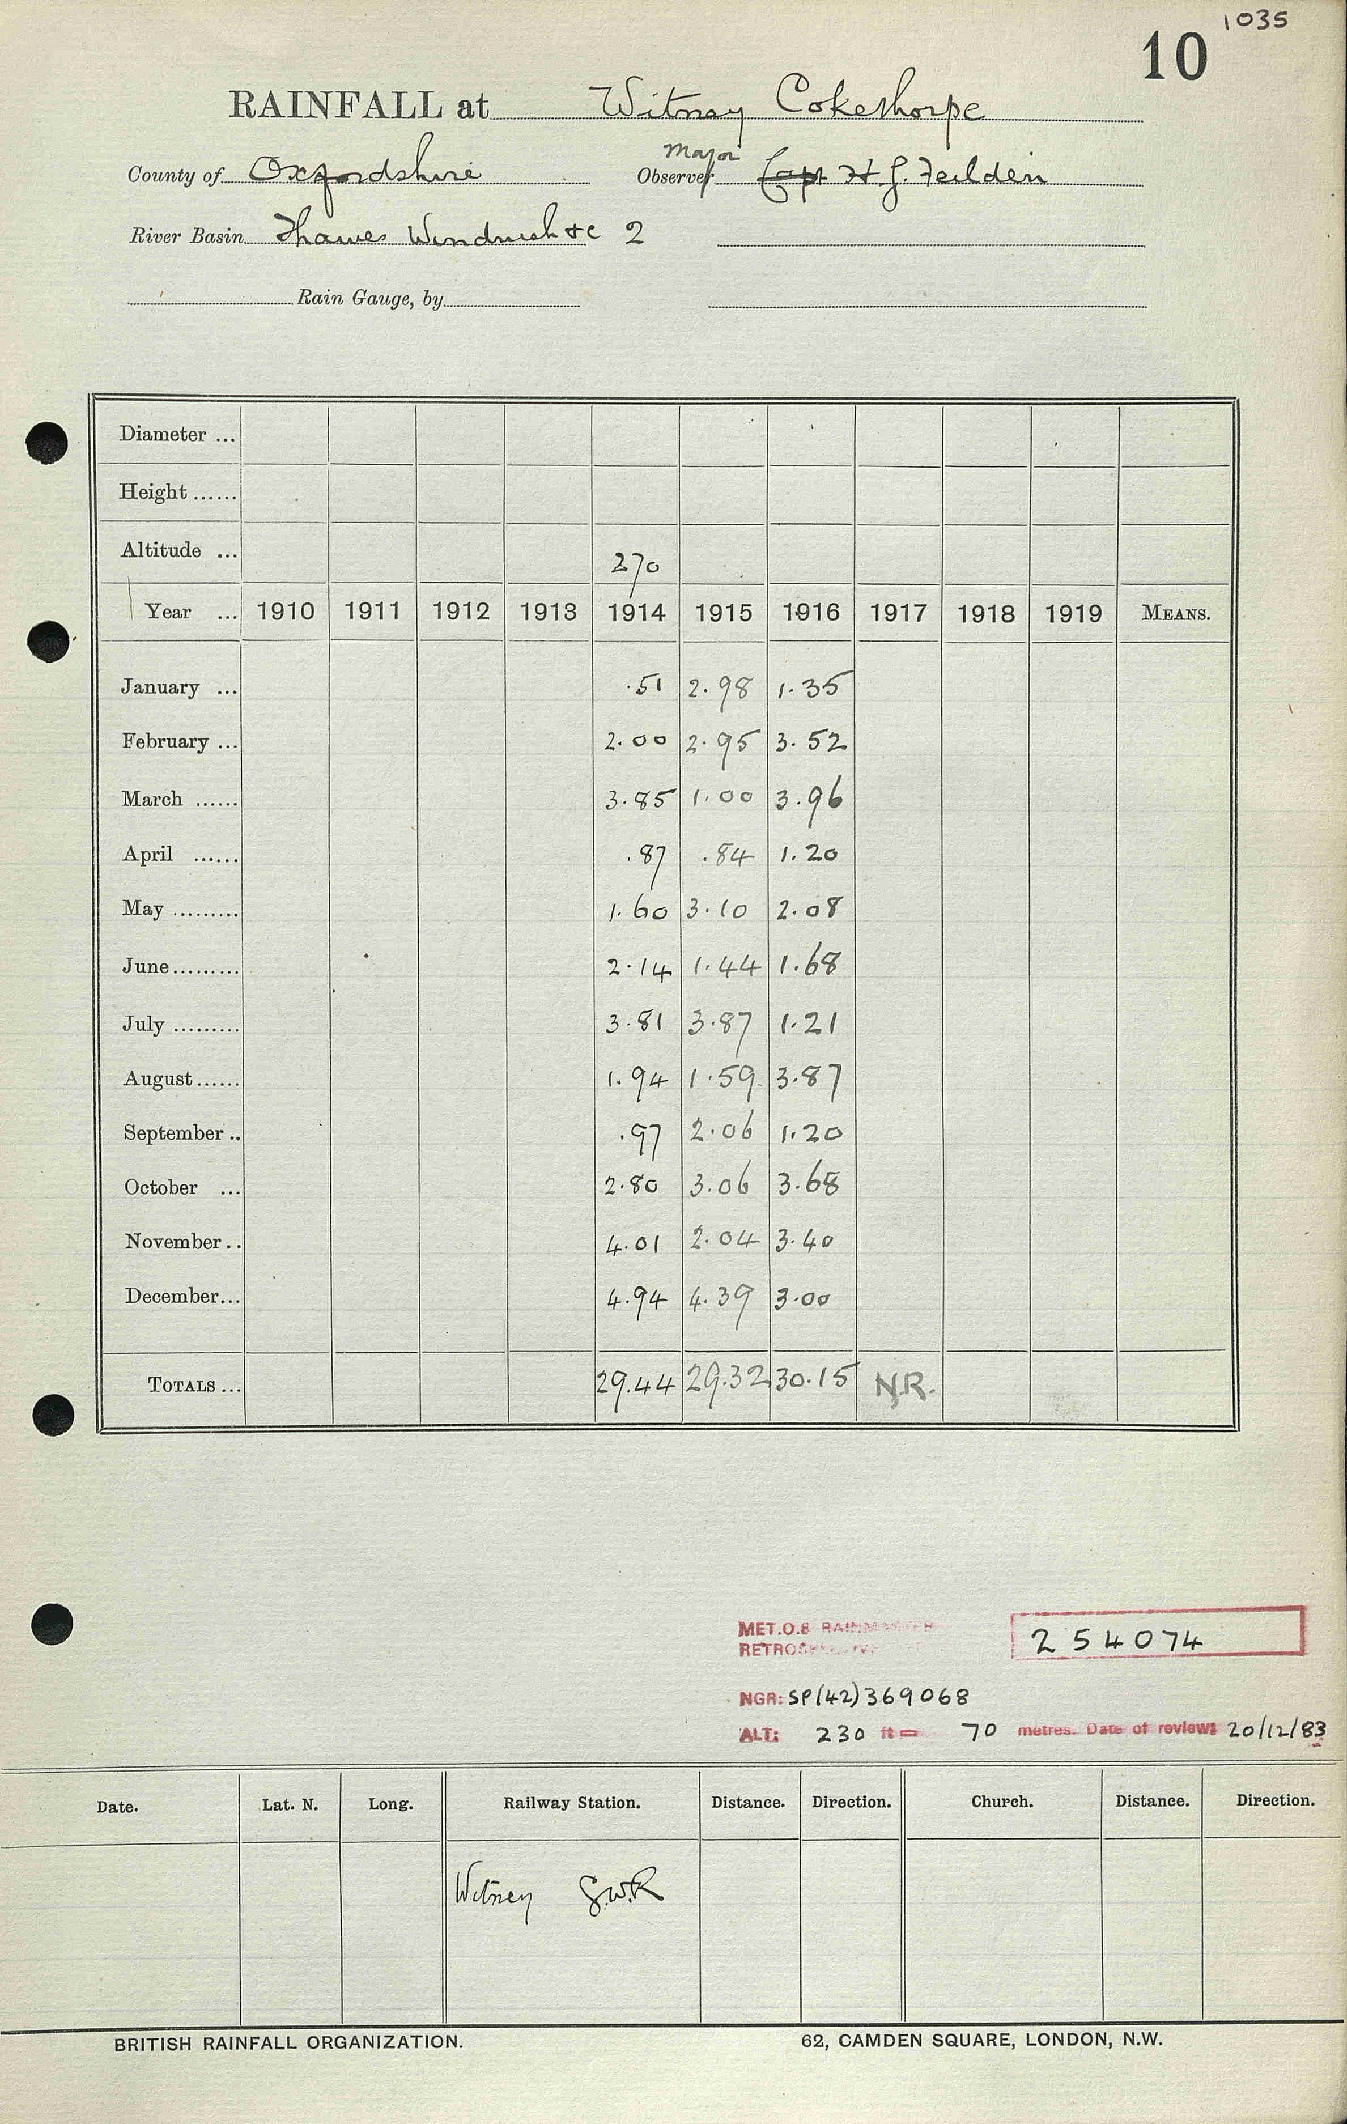 1035
10
RAINFALL at Witney Cokethorpe
Major
County of Oxfordshire Observer Capt H. G. Feilden
River Basin Thames Windrush &c 2
Rain Gauge, by
Diameter ...
Height ......
Altitude ... 270
Year ... 1910 1911 1912 1913 1914 1915 1916 1917 1918 1919 MEANS.
January ... .51 2.98 1.35
February ... 2.00 2.95 3.52
March ...... 3.85 1.00 3.96
April ...... .87 .84 1.20
May ......... 1.60 3.10 2.08
June......... 2.14 1.44 1.68
July ......... 3.81 3.87 1.21
August...... 1.94 1.59 3.87
September .. .97 2.06 1.20
October ... 2.80 3.06 3.68
November .. 4.01 2.04 3.40
December... 4.94 4.39 3.00
TOTALS ... 29.44 29.32 30.15 N.R.
MET.O.8 254074
NGR: SP(42)369068
ALT: 230 ft = 70 metres. Date of review: 20/12/83
Date. Lat. N. Long. Railway Station. Distance. Direction. Church. Distance. Direction.
Witney G.W.R
BRITISH RAINFALL ORGANIZATION. 62, CAMDEN SQUARE, LONDON, N.W.